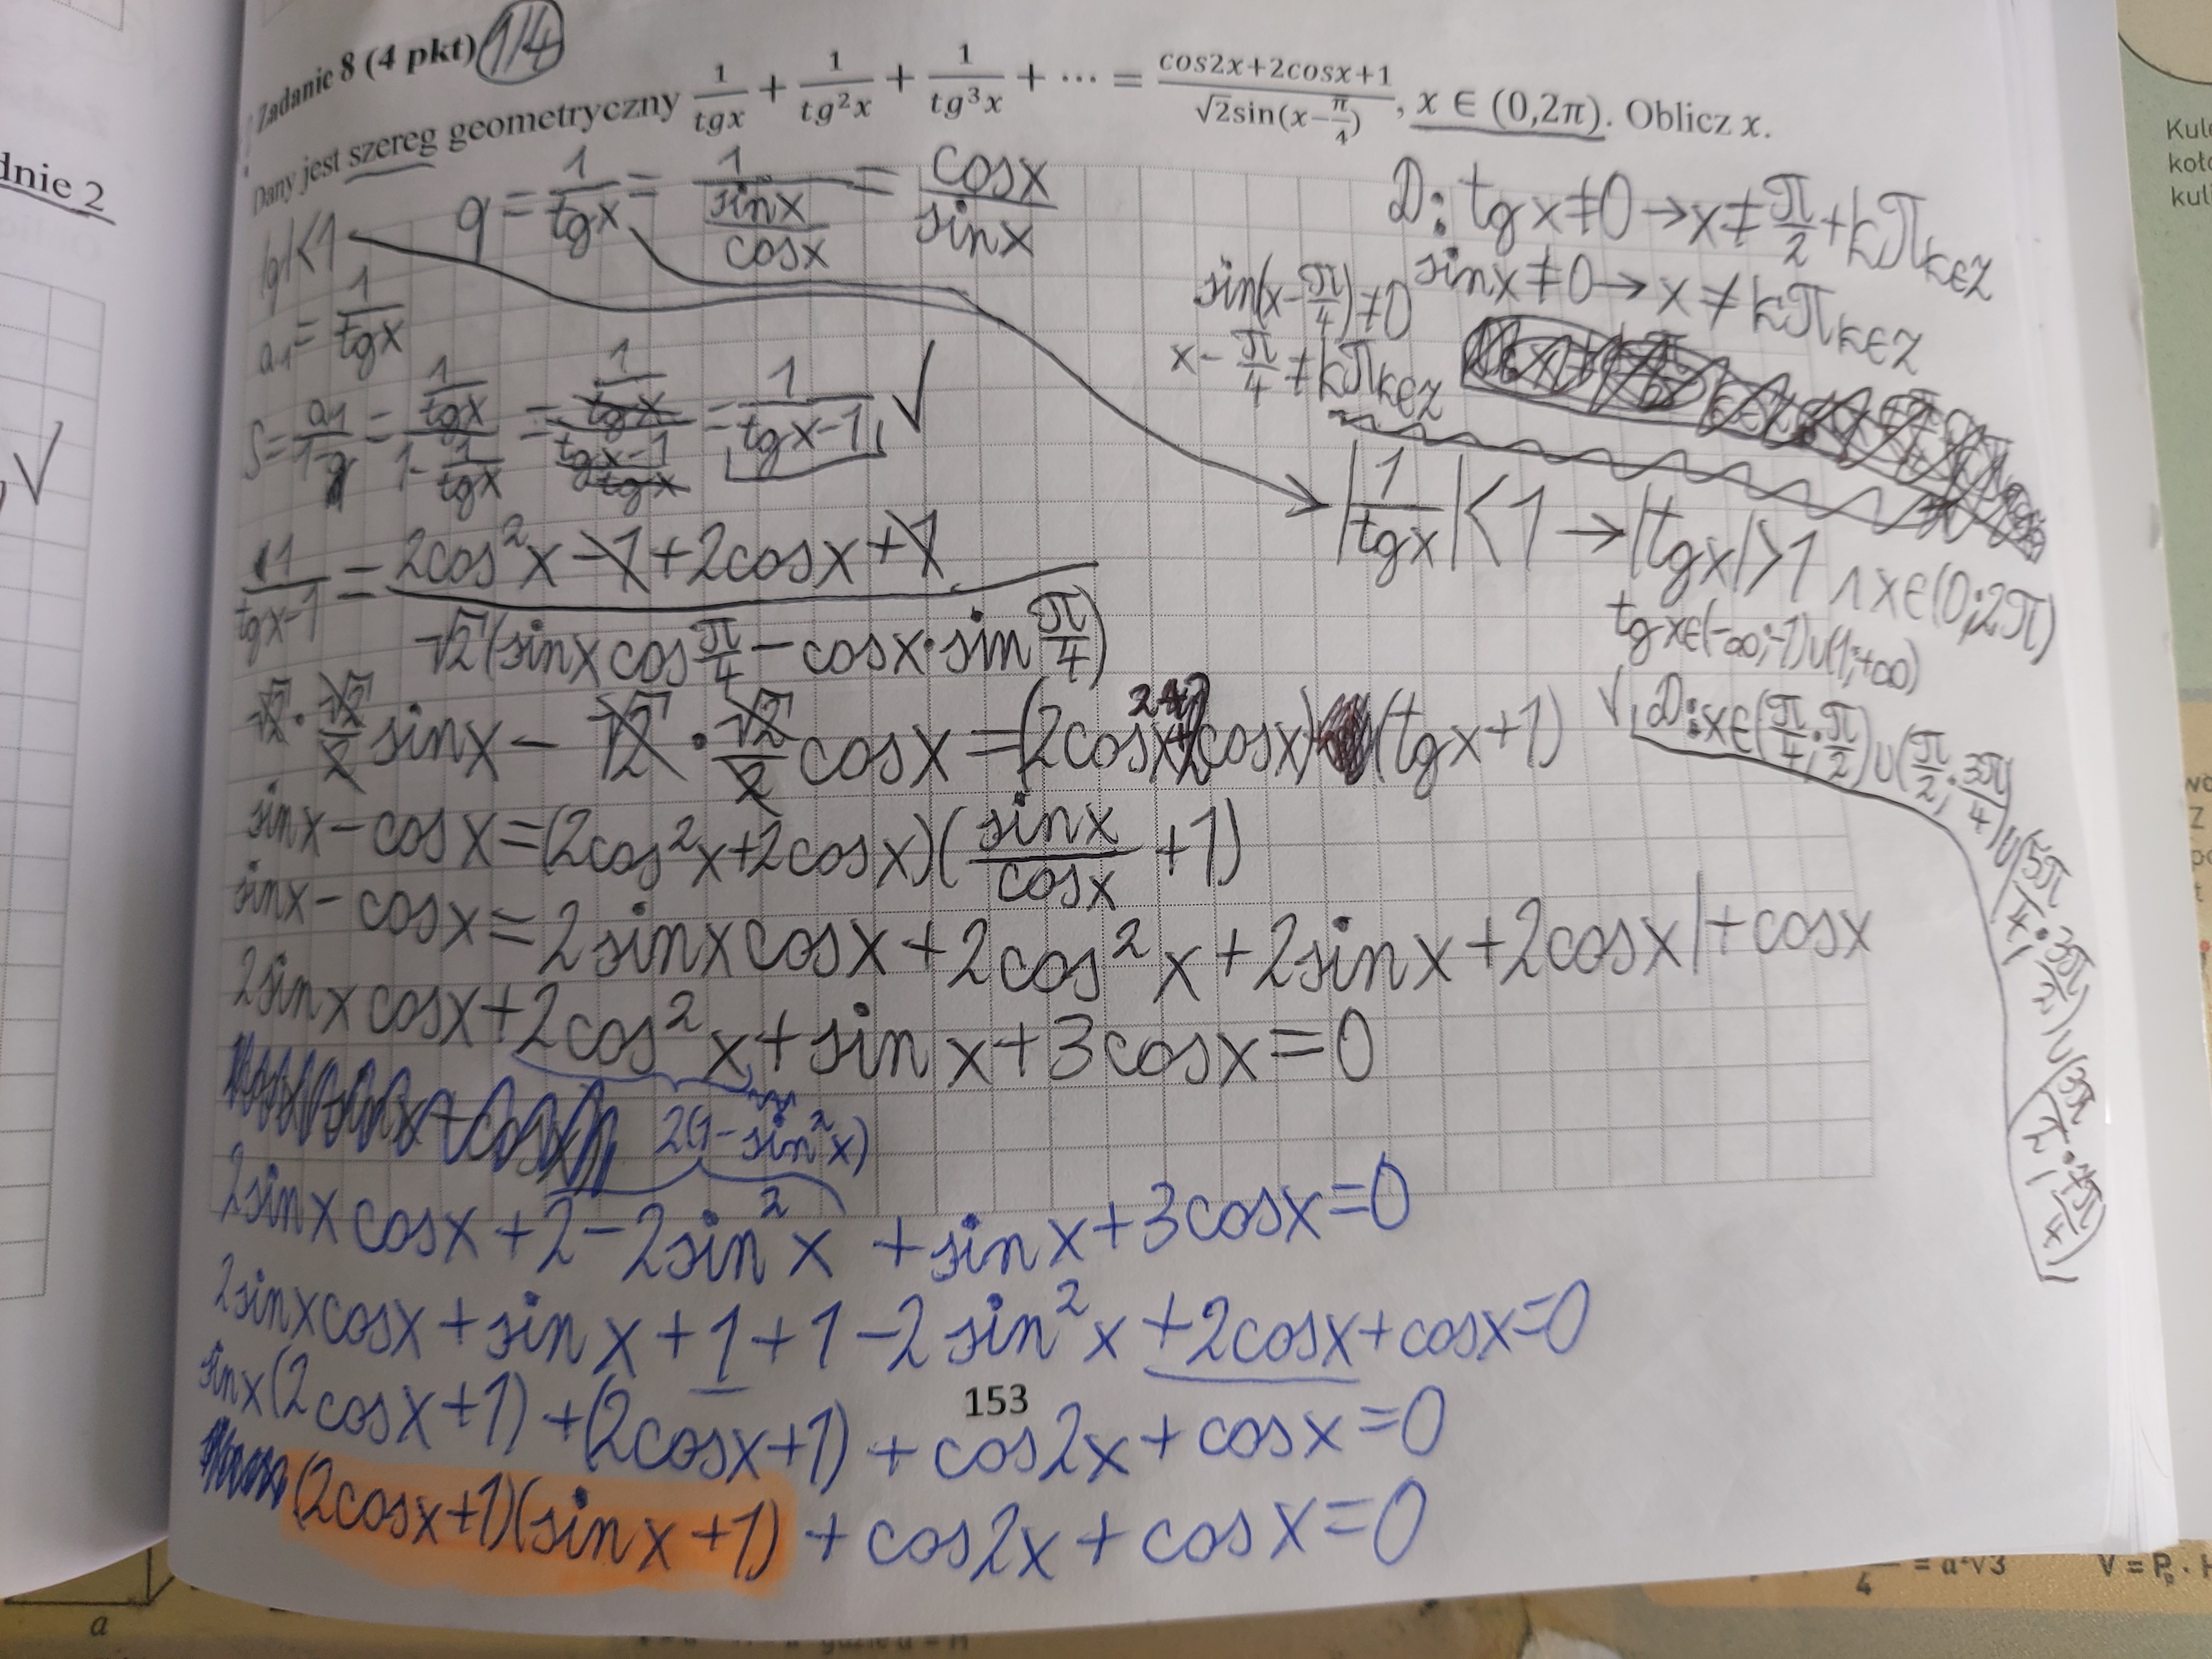 dnie 2
Zadanie 8 (4 pkt) 1/4
Dany jest szereg geometryczny 1/tgx + 1/tg²x + 1/tg³x + ⋯ = (cos2x+2cosx+1)/(√2sin(x−π/4)), x ∈ (0,2π). Oblicz x.
|q|<1 q = 1/tgx = 1/(sinx/cosx) = cosx/sinx
D: tgx≠0→x≠π/2+kπ k∈Z
sinx≠0→x≠kπ k∈Z
sin(x−π/4)≠0
x−π/4≠kπ k∈Z
a₁=1/tgx
S=a₁/(1−q)=(1/tgx)/(1−1/tgx)=(1/tgx)/((tgx−1)/tgx)=1/(tgx−1) ✓
|1/tgx|<1→|tgx|>1 ∧ x∈(0;2π)
tgx∈(−∞;−1)∪(1;+∞)
✓ D: x∈(π/4;π/2)∪(π/2;3π/4)∪(5π/4;3π/2)∪(3π/2;7π/4)
1/(tgx−1)=(2cos²x−1+2cosx+1)/(√2(sinxcosπ/4−cosx·sinπ/4))
√2·√2/2 sinx−√2·√2/2 cosx=(2cos²x+2cosx)(tgx+1)
sinx−cosx=(2cos²x+2cosx)(sinx/cosx+1)
sinx−cosx=2sinxcosx+2cos²x+2sinx+2cosx|+cosx
2sinxcosx+2cos²x+sinx+3cosx=0
2(1−sin²x)
2sinxcosx+2−2sin²x+sinx+3cosx=0
2sinxcosx+sinx+1+1−2sin²x+2cosx+cosx=0
sinx(2cosx+1)+(2cosx+1)+cos2x+cosx=0
(2cosx+1)(sinx+1)+cos2x+cosx=0
153
a